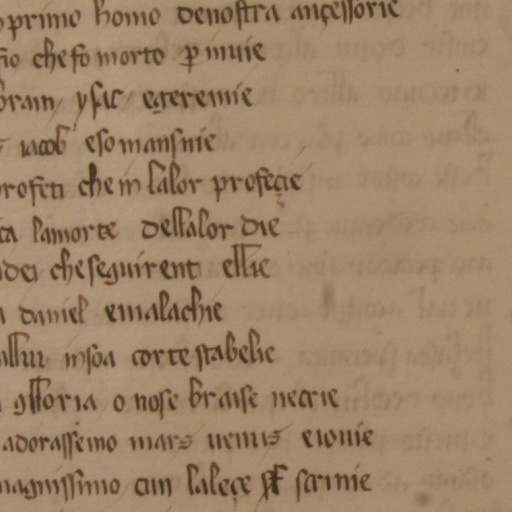 primo homo denostra ançessorie
che fo morto p muie
ysac egeremie
iacob esomansnie
profeti che in lalor profeçie
lamorte dellalor die
che seguirent ellie
daniel emalachie
insoa corte stabelie
onose braise necrie
adorassemo mars uenus eiouie
magnissimo cun laleçe scrinie